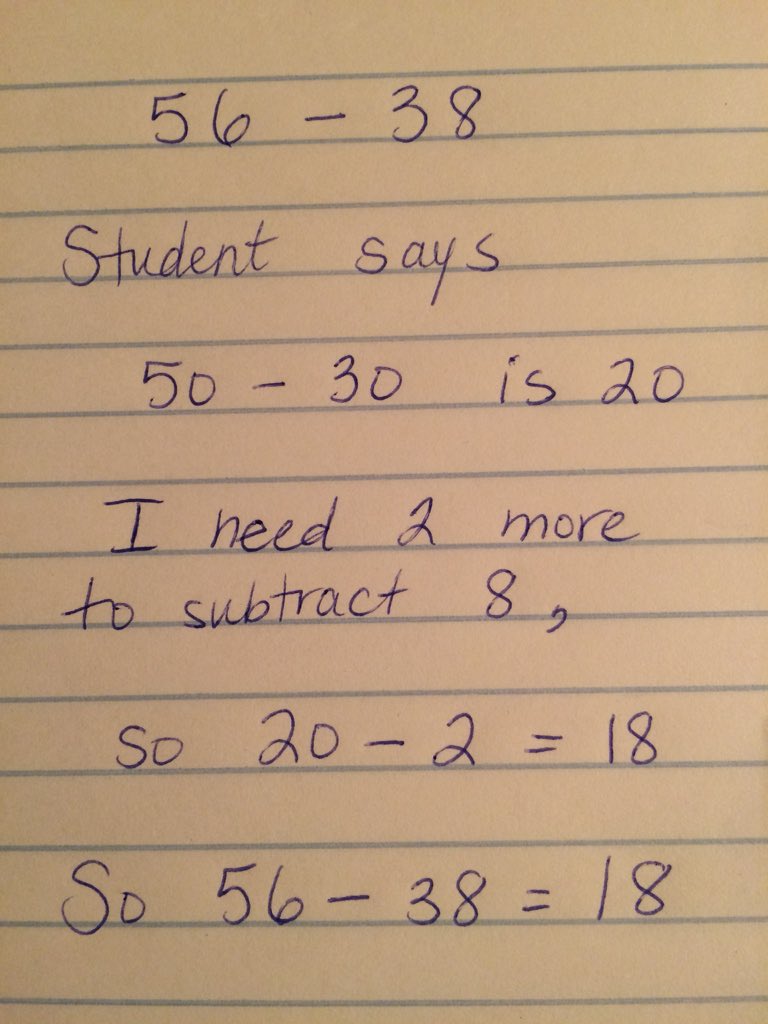 56 - 38
Student says
50 - 30 is 20
I need 2 more
to subtract 8,
so 20 - 2 = 18
So 56 - 38 = 18